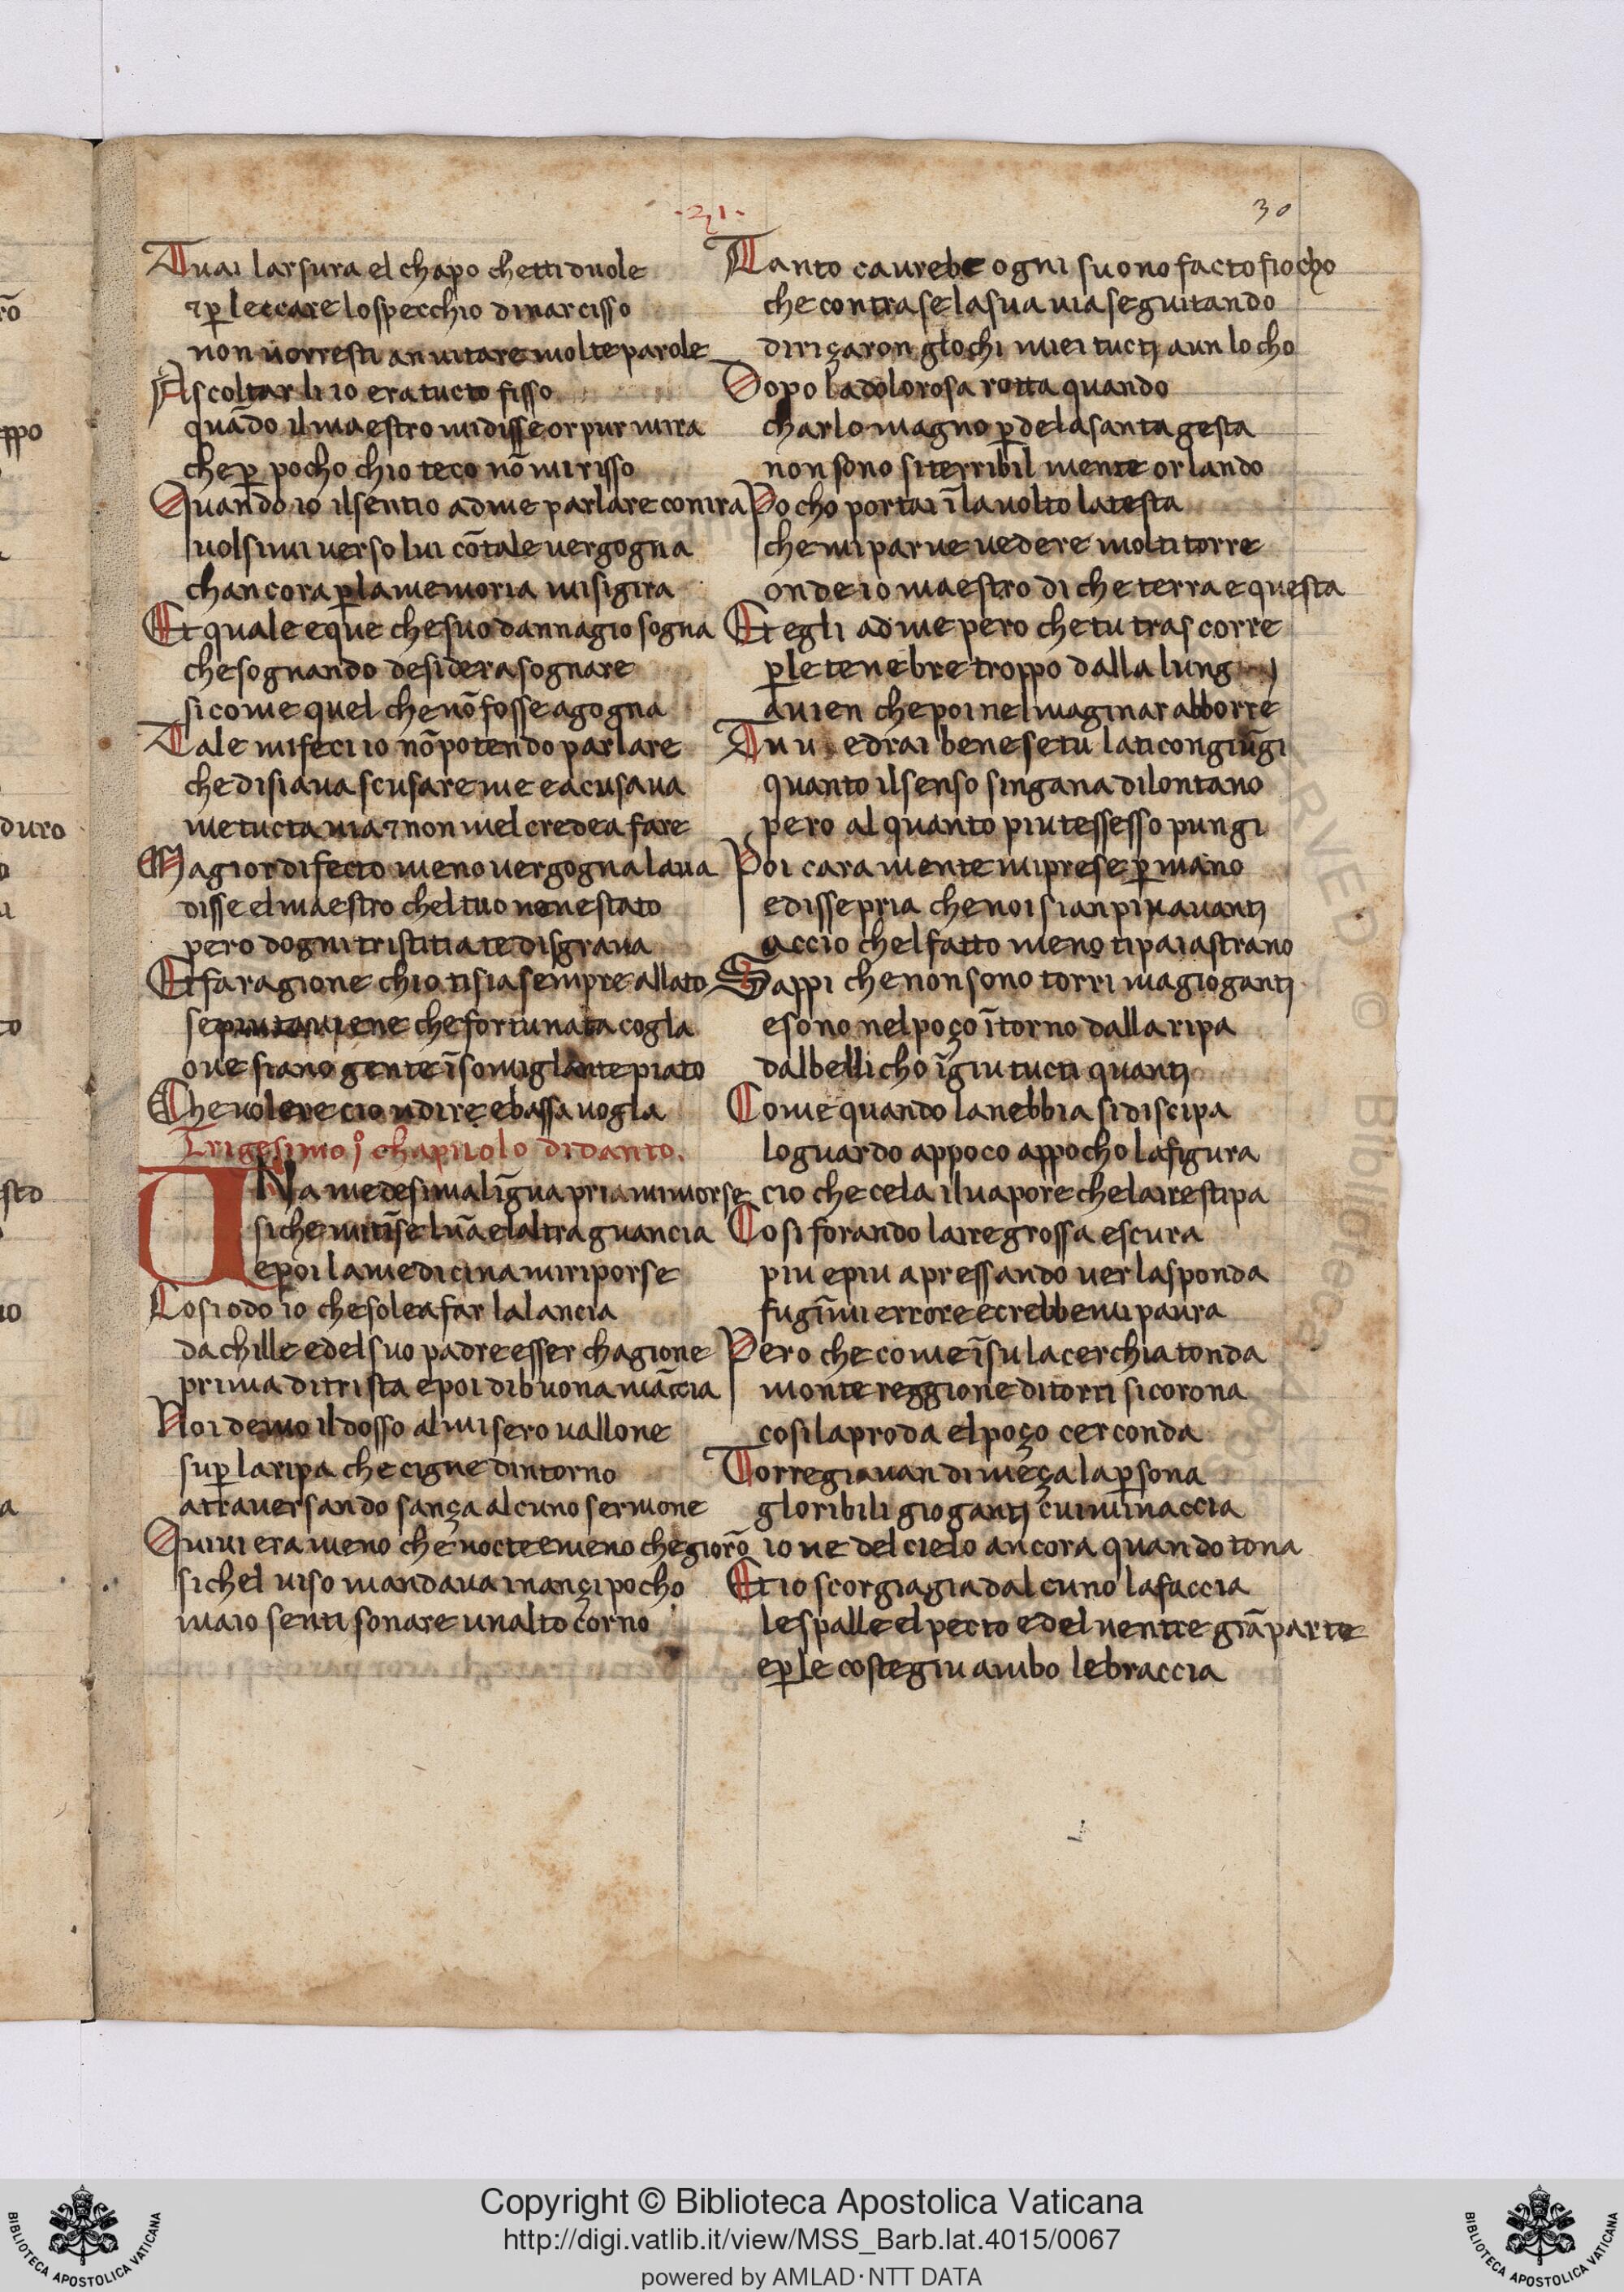 ·31·
30
Tuai larsura el chapo chetti duole
⁊ ꝑ leccare lo specchio di narcisso
non uorresti an uitare molte parole
Ascoltar li io era tucto fisso
quādo il maestro mi disse or pur mira
che ꝑ pocho chio teco nō mi risso
Quando io il sentio ad me parlare con ira
uolsimi uerso lui cō tale uergogna
chancora ꝑ la memoria mi si gira
Et quale e que che suo dannagio sogna
che sognando desidera sognare
si come quel che nō fosse agogna
Tale mi feci io nō potendo parlare
che disiaua scusare me e acusaua
me tucta uia ⁊ non mel credea fare
Magior difecto meno uergogna laua
disse el maestro chel tuo none stato
pero dogni tristitia te disgraua
Et fa ragione chio ti sia sempre allato
se piu tauiene che fortuna ta cogla
oue siano gente ī somiglante piato
Che uolere cio udire e bassa uogla
Trigesimo j° chapitolo di danto.
UNa medesima līgua pria mi morse
si che mi tīse luna e laltra guancia
e poi la medicina mi riporse
Cosi odo io che solea far la lancia
dachille e del suo padre esser chagione
prima di trista e poi di buona mācia
Noi demo il dosso al misero uallone
su ꝑ la ripa che cigne dintorno
attrauersando sança alcuno sermone
Quiui era meno che nocte e meno che giorō
si chel uiso mandaua inançi pocho
ma io senti sonare unalto corno
Tanto caurebe ogni suono facto fiocho
che contra se la sua uia seguitando
diriçaron glochi miei tuctj a un locho
Dopo la dolorosa rotta quando
charlo magno ꝑde la santa gesta
non sono si terribil mente orlando
Pocho portai ī la uolto la testa
che mi parue uedere molti torre
onde io maestro di che terra e questa
Et egli ad me pero che tu trascorre
ꝑ le tenebre troppo dalla lungi
auien che poi nel maginar abborre
Tu uedrai bene se tu la ti congiūgi
quanto il senso singana di lontano
pero al quanto piu te stesso pungi
Poi cara mente mi prese ꝑ mano
e disse pria che noi sian piu auantj
accio chel fatto meno ti paia strano
Sappi che non sono torri ma giogantj
e sono nel poço ītorno dalla ripa
dal bellicho ī giu tucti quantj
Come quando la nebbia si discipa
lo guardo appoco appocho la figura
cio che cela il uapore che laire stipa
Cosi forando laire grossa e scura
piu e piu apressando uer la sponda
fugīmi errore e crebbemi paura
Pero che come ī su la cerchia tonda
monte reggione di torri si corona
cosi la proda el poço cerconda
Torregiauan di meça la ꝑsona
gloribili giogantj cui minaccia
ioue del cielo ancora quando tona
Et io scorgia gia dalcuno la faccia
le spalle el pecto e del uentre grā parte
e ꝑ le coste giu ambo le braccia
Copyright © Biblioteca Apostolica Vaticana
http://digi.vatlib.it/view/MSS_Barb.lat.4015/0067
powered by AMLAD·NTT DATA
BIBLIOTECA APOSTOLICA VATICANA
BIBLIOTECA APOSTOLICA VATICANA